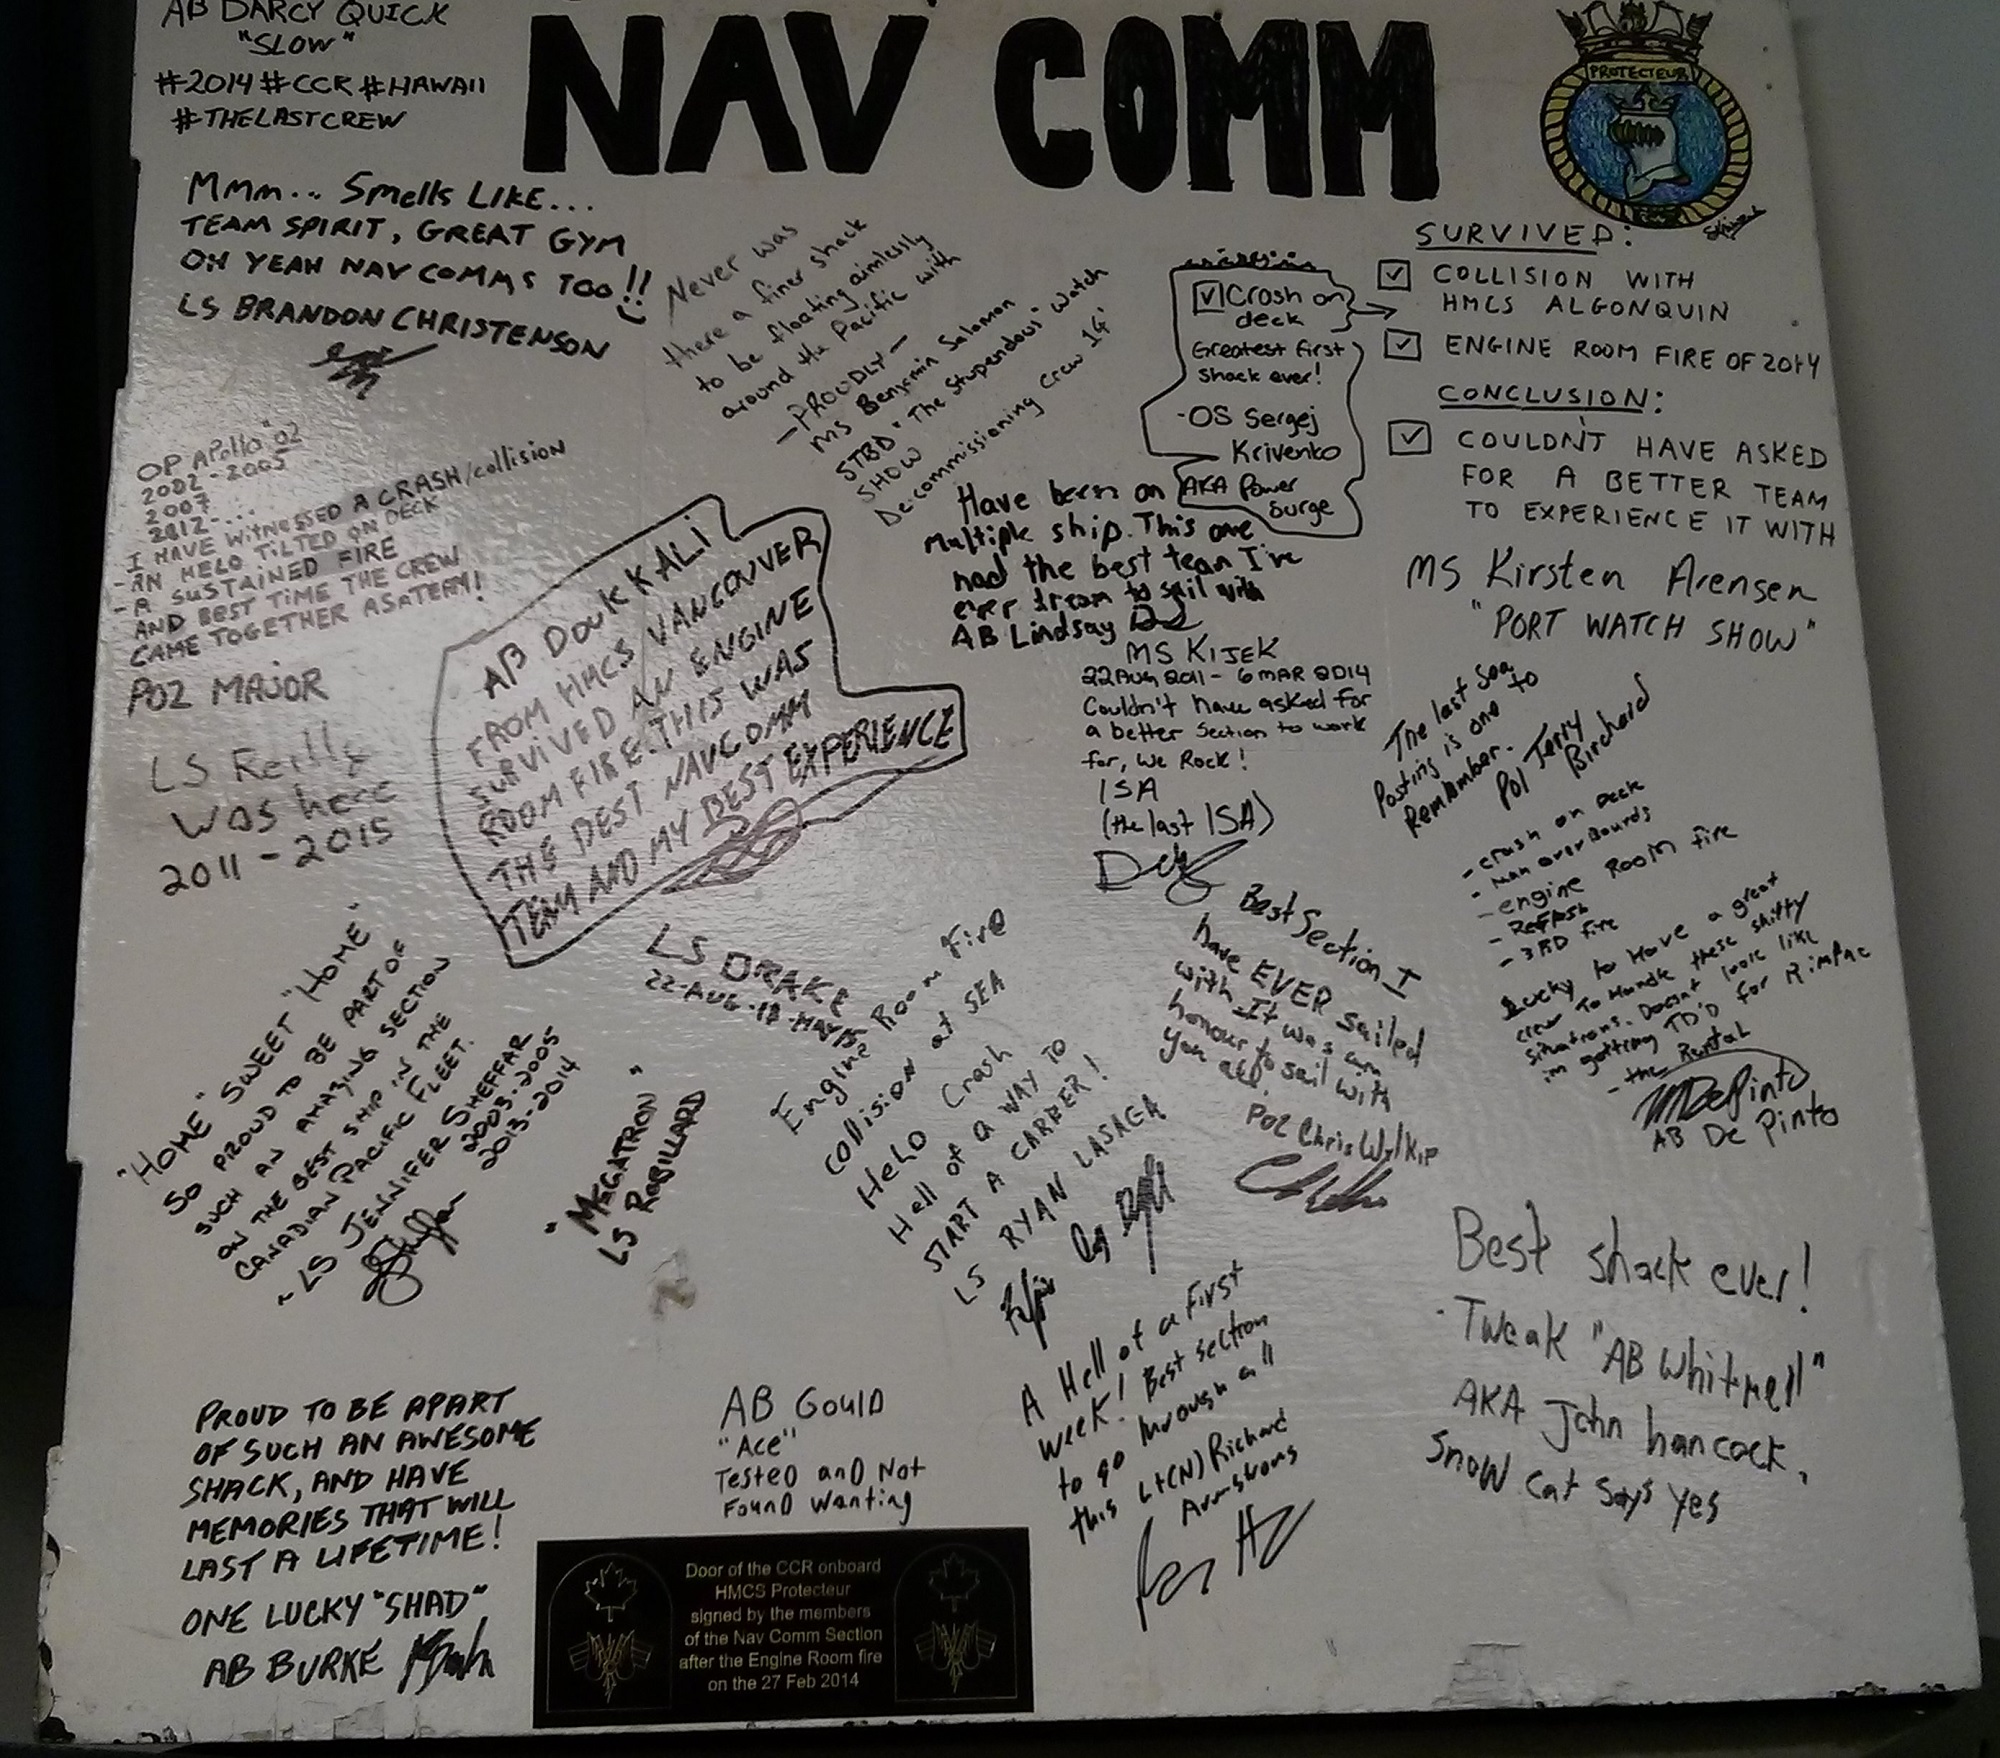 AB DARCY QUICK
"SLOW"
#2014 #CCR #HAWAII
#THELASTCREW
NAV COMM
PROTECTEUR
Mmm... Smells LIKE...
TEAM SPIRIT, GREAT GYM
OH YEAH NAV COMMS TOO!!
LS BRANDON CHRISTENSON
Never was
there a finer shack
to be floating aimlessly
around the Pacific with
- PROUDLY -
MS Benjamin Salomon
STBD "The Stupendous" Watch
SHOW
Decommissioning Crew 14'
Crash on
deck
Greatest first
shack ever!
-OS Sergej
Krivenko
AKA Power
Surge
SURVIVED:
COLLISION WITH
HMCS ALGONQUIN
ENGINE ROOM FIRE OF 2014
CONCLUSION:
COULDN'T HAVE ASKED
FOR A BETTER TEAM
TO EXPERIENCE IT WITH
MS Kirsten Arensen
"PORT WATCH SHOW"
OP Apollo "02
2002-2005
2007
2012-...
I HAVE WITNESSED A CRASH/collision
-AN HELO TILTED ON DECK
-A SUSTAINED FIRE
AND BEST TIME THE CREW
CAME TOGETHER AS A TEAM!
PO2 MAJOR
LS Reilly
was here
2011-2015
AB DOUKKALI
FROM HMCS VANCOUVER
SURVIVED AN ENGINE
ROOM FIRE. THIS WAS
THE BEST NAVCOMM
TEAM AND MY BEST EXPERIENCE
Have been on
multiple ship. This one
had the best team I've
ever dream to sail with
AB Lindsay
MS KIJEK
22 Aug 2011 - 6 MAR 2014
Couldn't have asked for
a better Section to work
for, We Rock!
ISA
(the last ISA)
The last Sea
Posting is one to
Remember.
PO1 Terry
Birchard
- crash on Deck
- Man overBoards
- engine Room fire
- Reflash
- 3RD fire
Lucky to Have a great
crew To Handle these shitty
situations. Doesnt look like
im getting TD'D for Rimpac
- the Rental
AB De Pinto
LS DRAKE
Engine Room Fire
Collision at SEA
Helo Crash
Hell of a WAY TO
START A CAREER!
LS RYAN LASAGA
Best Section I
have EVER sailed
with It was an
honour to sail with
you all.
PO2 Chris Wylkip
"HOME" SWEET "HOME"
SO PROUD TO BE PART OF
SUCH AN AMAZING SECTION
ON THE BEST SHIP IN THE
CANADIAN PACIFIC FLEET.
~ LS JENNIFER SHEFFAR
2003-2005
2013-2014
"MEGATRON"
LS ROBILLARD
A Hell of a First
week! Best section
to go through all
this Lt(N) Richard
Armstrong
Best shack ever!
-Tweak "AB Whitmell"
AKA John hancock,
Snow cat says yes
PROUD TO BE APART
OF SUCH AN AWESOME
SHACK, AND HAVE
MEMORIES THAT WILL
LAST A LIFETIME!
ONE LUCKY "SHAD"
AB BURKE
AB GOULD
"Ace"
TesteD anD Not
FounD Wanting
Door of the CCR onboard
HMCS Protecteur
signed by the members
of the Nav Comm Section
after the Engine Room fire
on the 27 Feb 2014